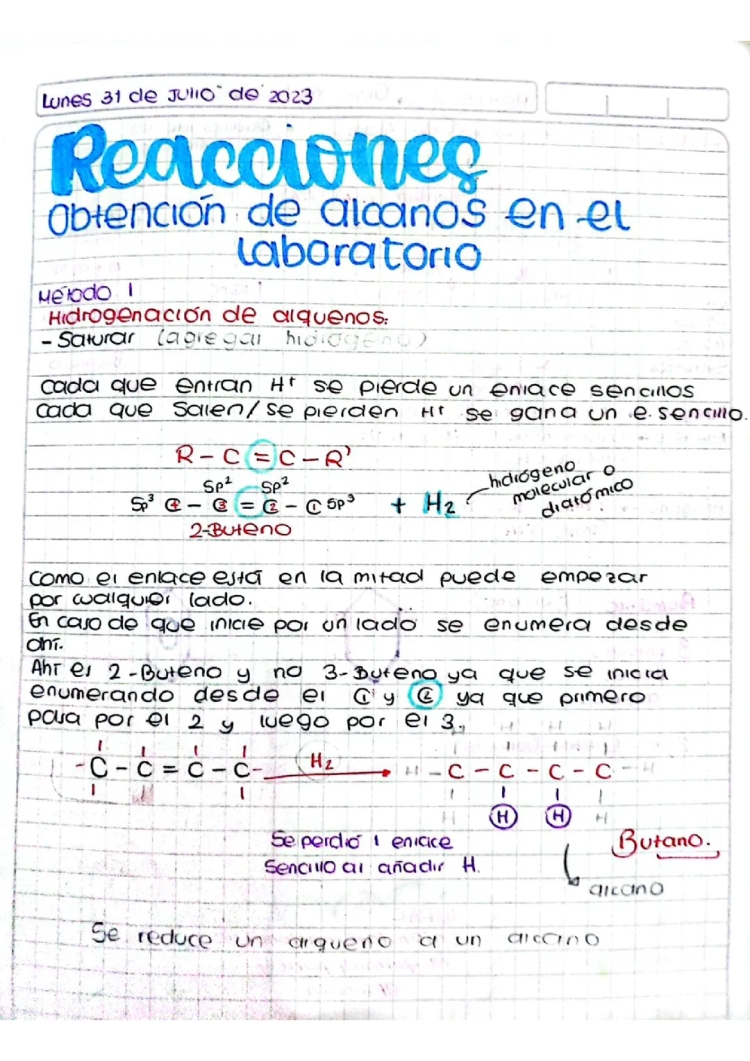 Lunes 31 de Julio de 2023
Reacciones
Obtención de alcanos en el
laboratorio
Método 1
Hidrogenación de alquenos:
- Saturar (agregar hidrógeno)
cada que entran H+ se pierde un enlace sencillos
cada que salen/se pierden H+ se gana un e. sencillo.
R - C = C - R'
sp² sp²
sp³ C4 - C3 = C2 - C1 sp³ + H₂
hidrógeno
molecular o
diatómico
2-Buteno
como el enlace está en la mitad puede empezar
por cualquier lado.
En caso de que inicie por un lado se enumera desde
ahí.
Ahí es 2-Buteno y no 3-Buteno ya que se inicia
enumerando desde el C1 y C2 ya que primero
pasa por el 2 y luego por el 3.
H H H H
- C - C = C - C - H₂ → H - C - C - C - C - H
H H H H
Se perdió 1 enlace
Sencillo al añadir H.
Butano.
alcano
Se reduce un alqueno a un alcano